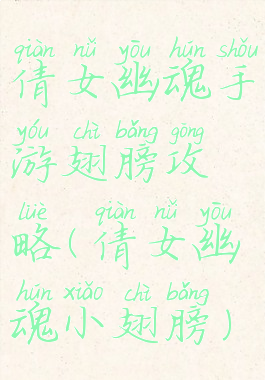 qiàn nǚ yōu hún shǒu
倩女幽魂手
yóu chì bǎng gōng
游翅膀攻
lüè qiàn nǚ yōu
略(倩女幽
hún xiǎo chì bǎng
魂小翅膀)